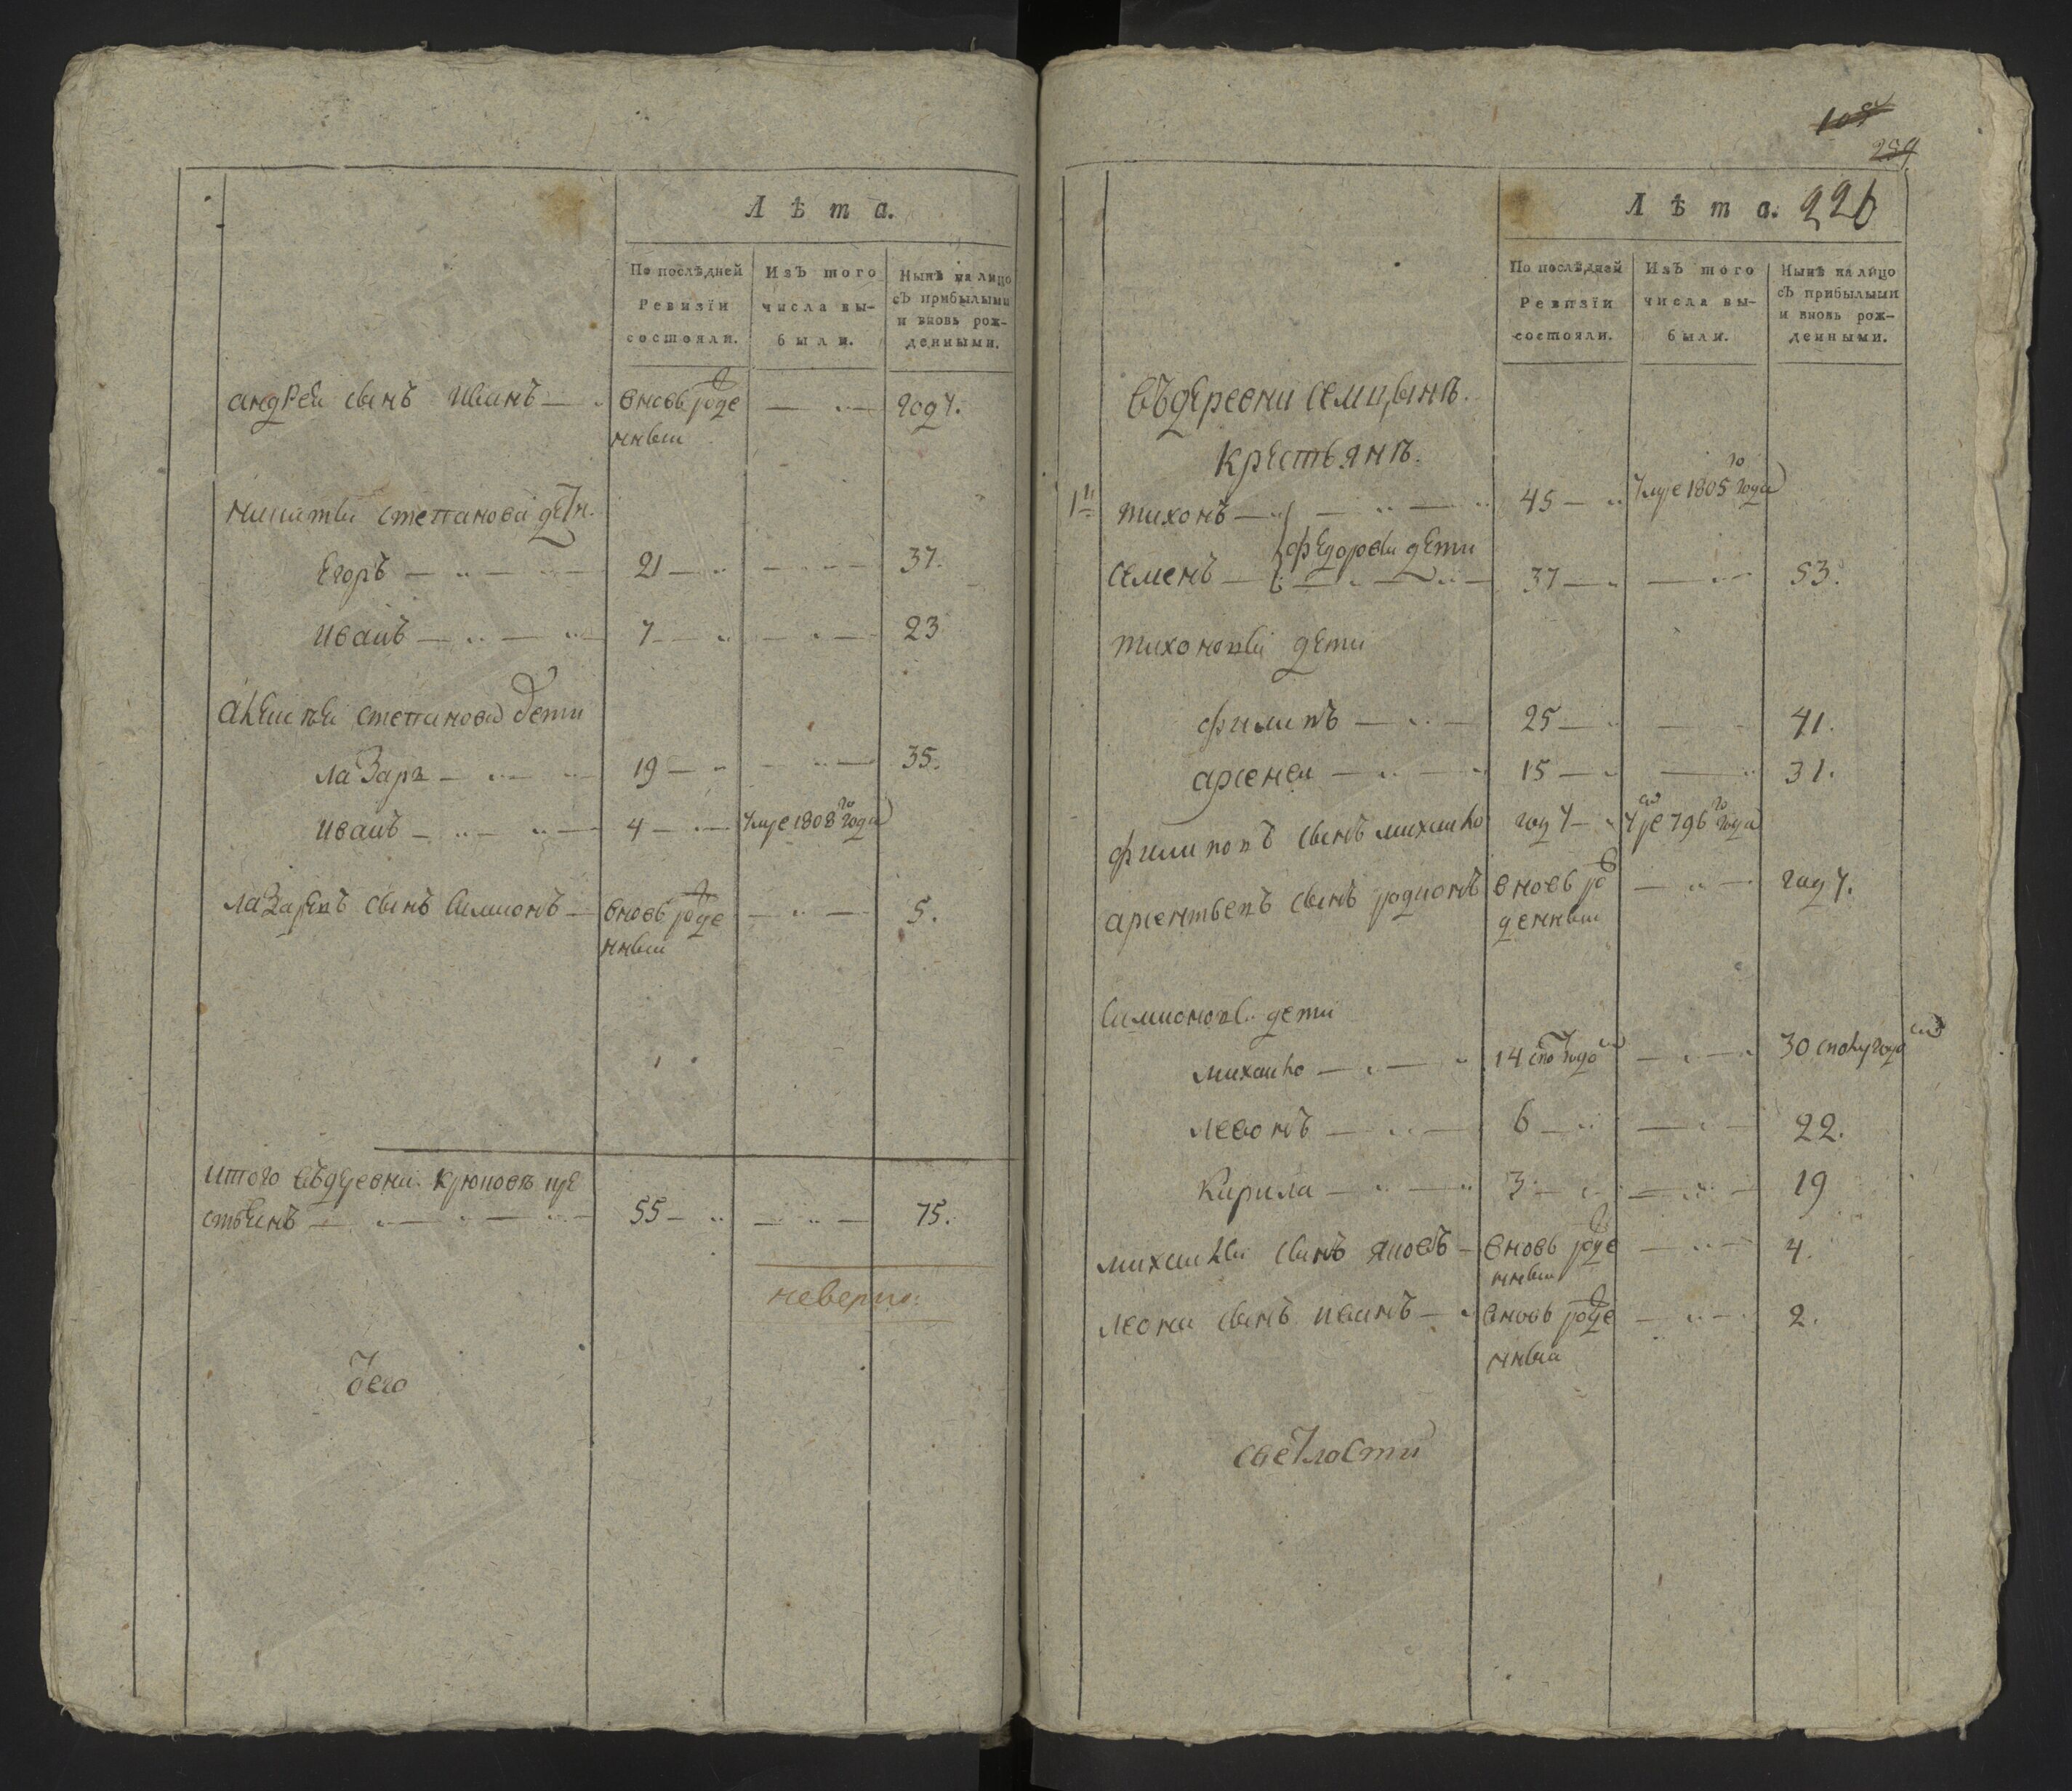 Лѣта.
По послѣдней Ревизїи состояли.
Изъ того числа вы- были.
Нынѣ на лицо съ прибылыми и вновь рож- денными.
андрея сынъ иванъ — вновь рожде — год 1.
нный
никиты степанова дети.
Егоръ — 21 — — 37.
иванъ — 7 — — 23
степанова дети
лазарь — 19 — — 35.
иванъ — 4 — умре 1808го года
лазаревъ сынъ симионъ — вновь рожде — 5.
нный
итого въ деревни крюковѣ кре
стьянъ — 55 — — 75.
неверно.
его
109
259
Лѣта. 226
По послѣдней Ревизїи состояли.
Изъ того числа вы- были.
Нынѣ на лицо съ прибылыми и вновь рож- денными.
въ деревни семицынѣ.
крестьянъ.
1й тихонъ — 45 — умре 1805го года
федоровы дети
семенъ — 37 — — 53.
тихоновы дети
филипъ — 25 — — 41.
арсеней — 15 — — 31.
филиповъ сынъ михайло год 1 — 796го года
арсентьевъ сынъ родионъ вновь ро — год 1.
жденный
симионовы дети
михайло — 14 с по годо — 30 с полугодо
левонъ — 6 — — 22.
Кирила — 3 — — 19
михайлы сынъ яковъ — вновь рожде — 4.
нный
леона сынъ иванъ — вновь рожде — 2.
нный
светлости